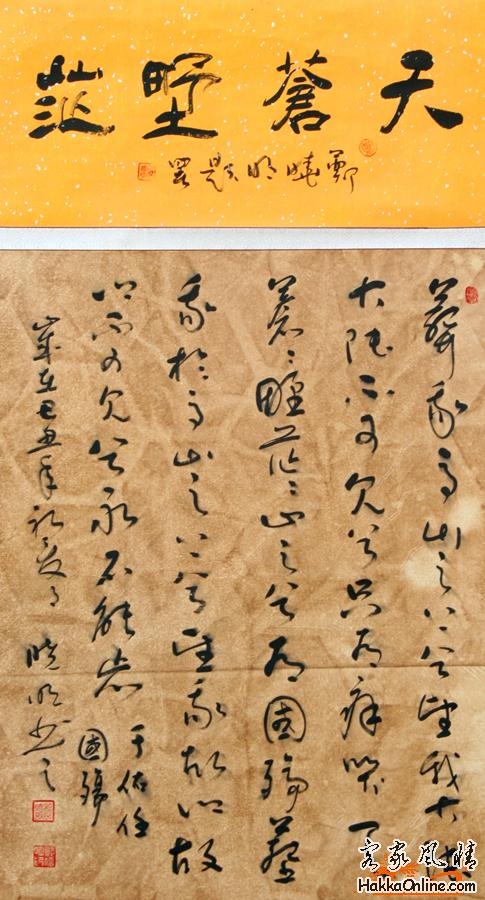 天蒼野茫
鄭曉明題署
葬我高山之上兮望我大陸
大陸不可見兮只有痛哭天
蒼〻野茫〻山之兮有國殤葬
我於高山之上兮望我故鄉故
鄉不可見兮永不能忘
于佑任
國殤
歲在己丑年初夏月曉明書之
客家風情
HakkaOnline.com